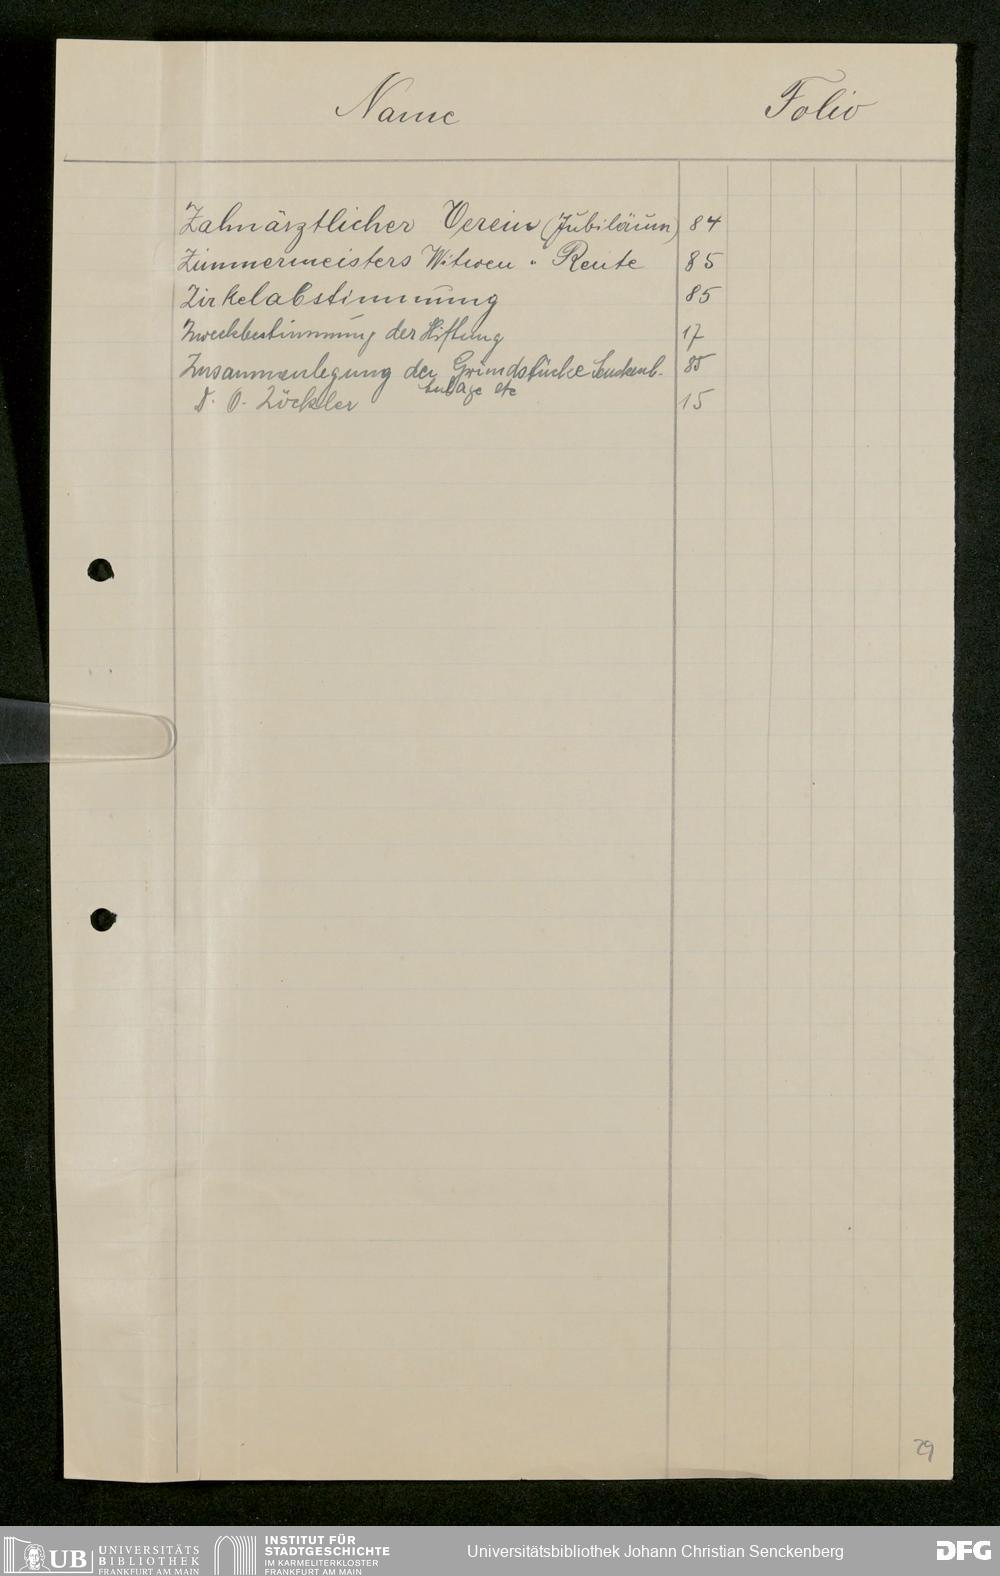 Name Folio
Zahnärztlicher Verein (Jubiläum) 84
Zimmermeisters Witwen - Rente 85
Zirkelabstimmung 85
Zweckbestimmung der Stiftung 17
Zusammenlegung der Grundstücke Senckenb. 85
anlage etc
D. O. Zöckler 15
29
UB UNIVERSITÄTS BIBLIOTHEK FRANKFURT AM MAIN
INSTITUT FÜR STADTGESCHICHTE IM KARMELITERKLOSTER FRANKFURT AM MAIN
Universitätsbibliothek Johann Christian Senckenberg
DFG